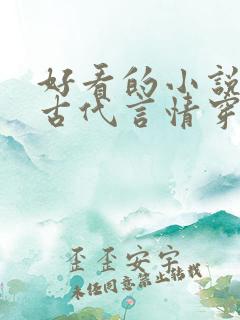 好看的小说
古代言情穿
歪歪安字
未经同意禁止转载